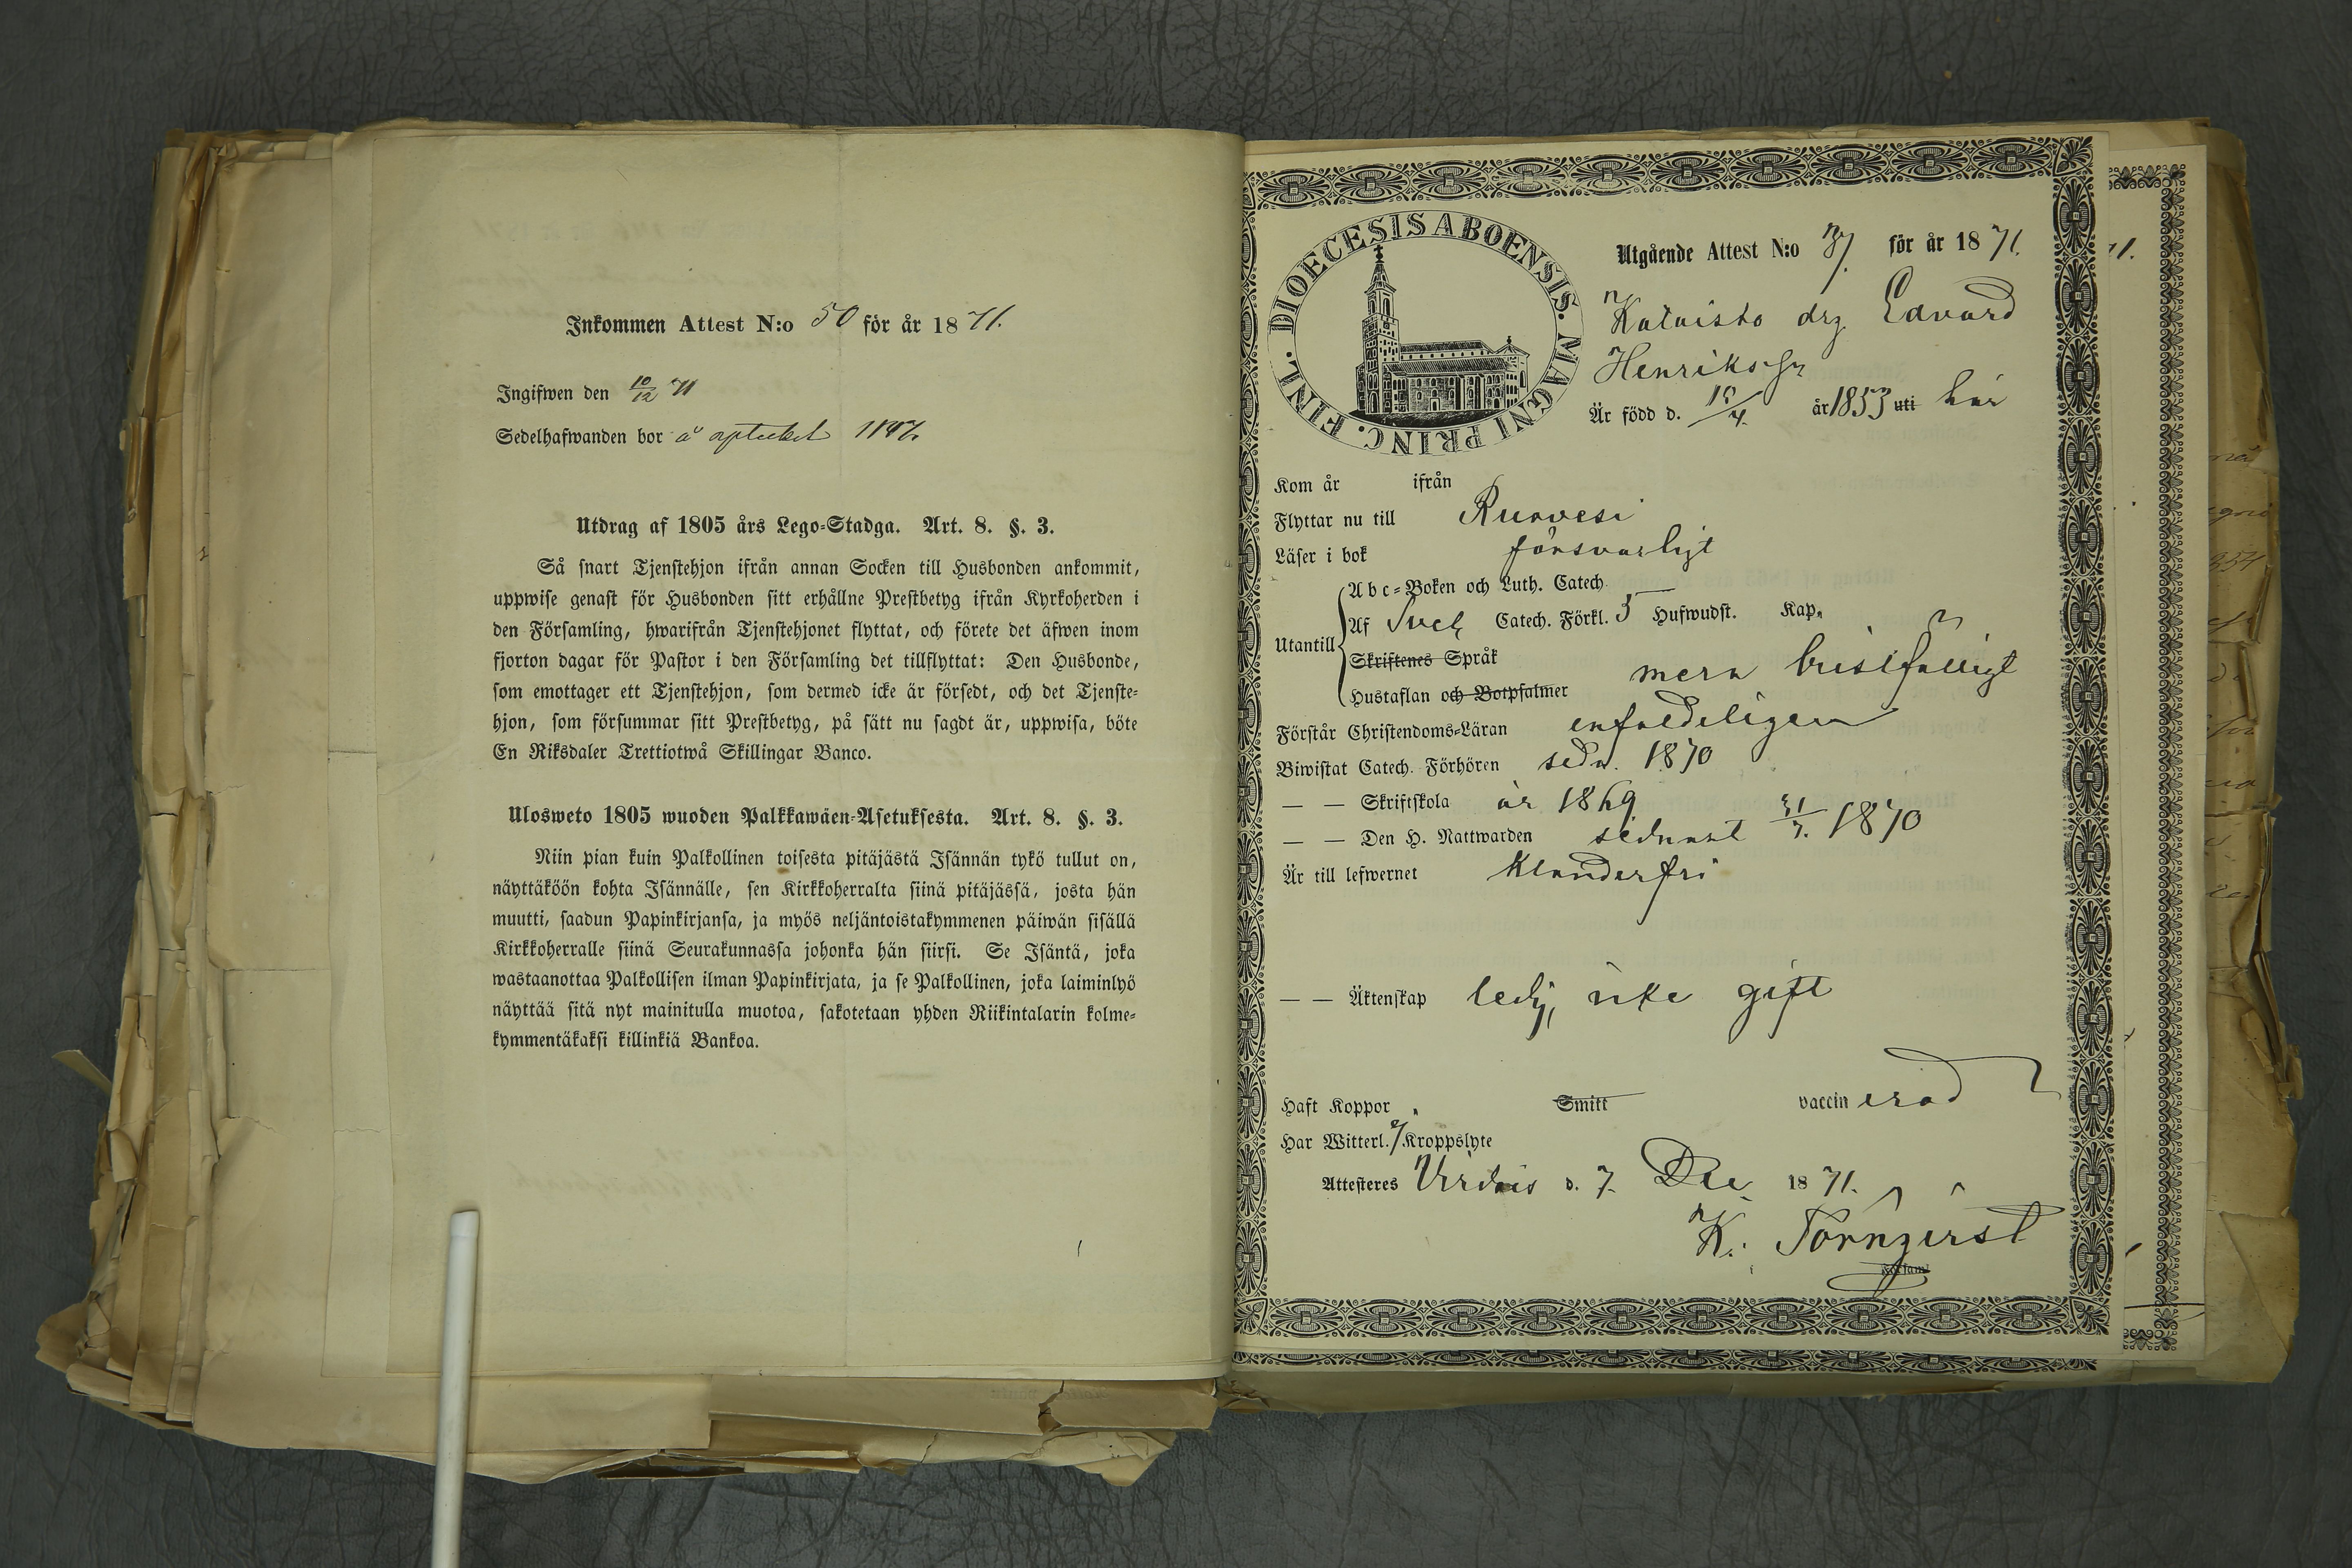 Inkommen Attest N:o 50 för år 1871.
Ingifwen den 10/12 71
Sedelhafwanden bor å apteket
Utdrag af 1805 års Lego-Stadga. Art. 8. §. 3.
Så snart Tjenstehjon ifrån annan Socken till Husbonden ankommit,
uppwise genast för Husbonden sitt erhållne Prestbetyg ifrån Kyrkoherden i
den Församling, hwarifrån Tjenstehjonet flyttat, och förete det äfwen inom
fjorton dagar för Pastor i den Församling det tillflyttat: Den Husbonde,
som emottager ett Tjenstehjon, som dermed icke är försedt, och det Tjenste-
hjon, som försummar sitt Prestbetyg, på sätt nu sagdt är, uppwisa, böte
En Riksdaler Trettiotwå Skillingar Banco.
Ulosweto 1805 wuoden Palkkawäen-Asetuksesta. Art. 8. §. 3.
Niin pian kuin Palkollinen toisesta pitäjästä Isännän tykö tullut on,
näyttäköön kohta Isännälle, sen Kirkkoherralta siinä pitäjässä, josta hän
muutti, saadun Papinkirjansa, ja myös neljäntoistakymmenen päiwän sisällä
Kirkkoherralle siinä Seurakunnassa johonka hän siirsi. Se Isäntä, joka
wastaanottaa Palkollisen ilman Papinkirjata, ja se Palkollinen, joka laiminlyö
näyttää sitä nyt mainitulla muotoa, sakotetaan yhden Riikintalarin kolme-
kymmentäkaksi killinkiä Bankoa.
DIOECESIS ABOENSIS. MAGNI PRINC. FINL.
Utgående Attest N:o för år 1871.
drg. Edvard
Henriksson
Är född d. 10/4. år 1853 uti här
Kom år ifrån
Flyttar nu till Ruovesi
Läser i bok försvarligt
Abc-Boken och Luth. Catech.
Utantill Af Sveb. Catech. Förkl. 5 Hufwudst. Kap.
Skriftenes Språk
Hustaflan och Botpsalmer mera bristfälligt
Förstår Christendoms-Läran enfaldeligen
Biwistat Catech. Förhören sedn. 1870
— — Skriftskola år 1869
— — Den H. Nattwarden sednast 31/7. 1870
Är till lefwernet klanderfri
— — Äktenskap ledig, icke gift
Haft Koppor Smitt vaccinerad
Har Witterl. ej Kroppslyte
Attesteres Virdois d. 7. Dec. 1871.
K. Törnqvist